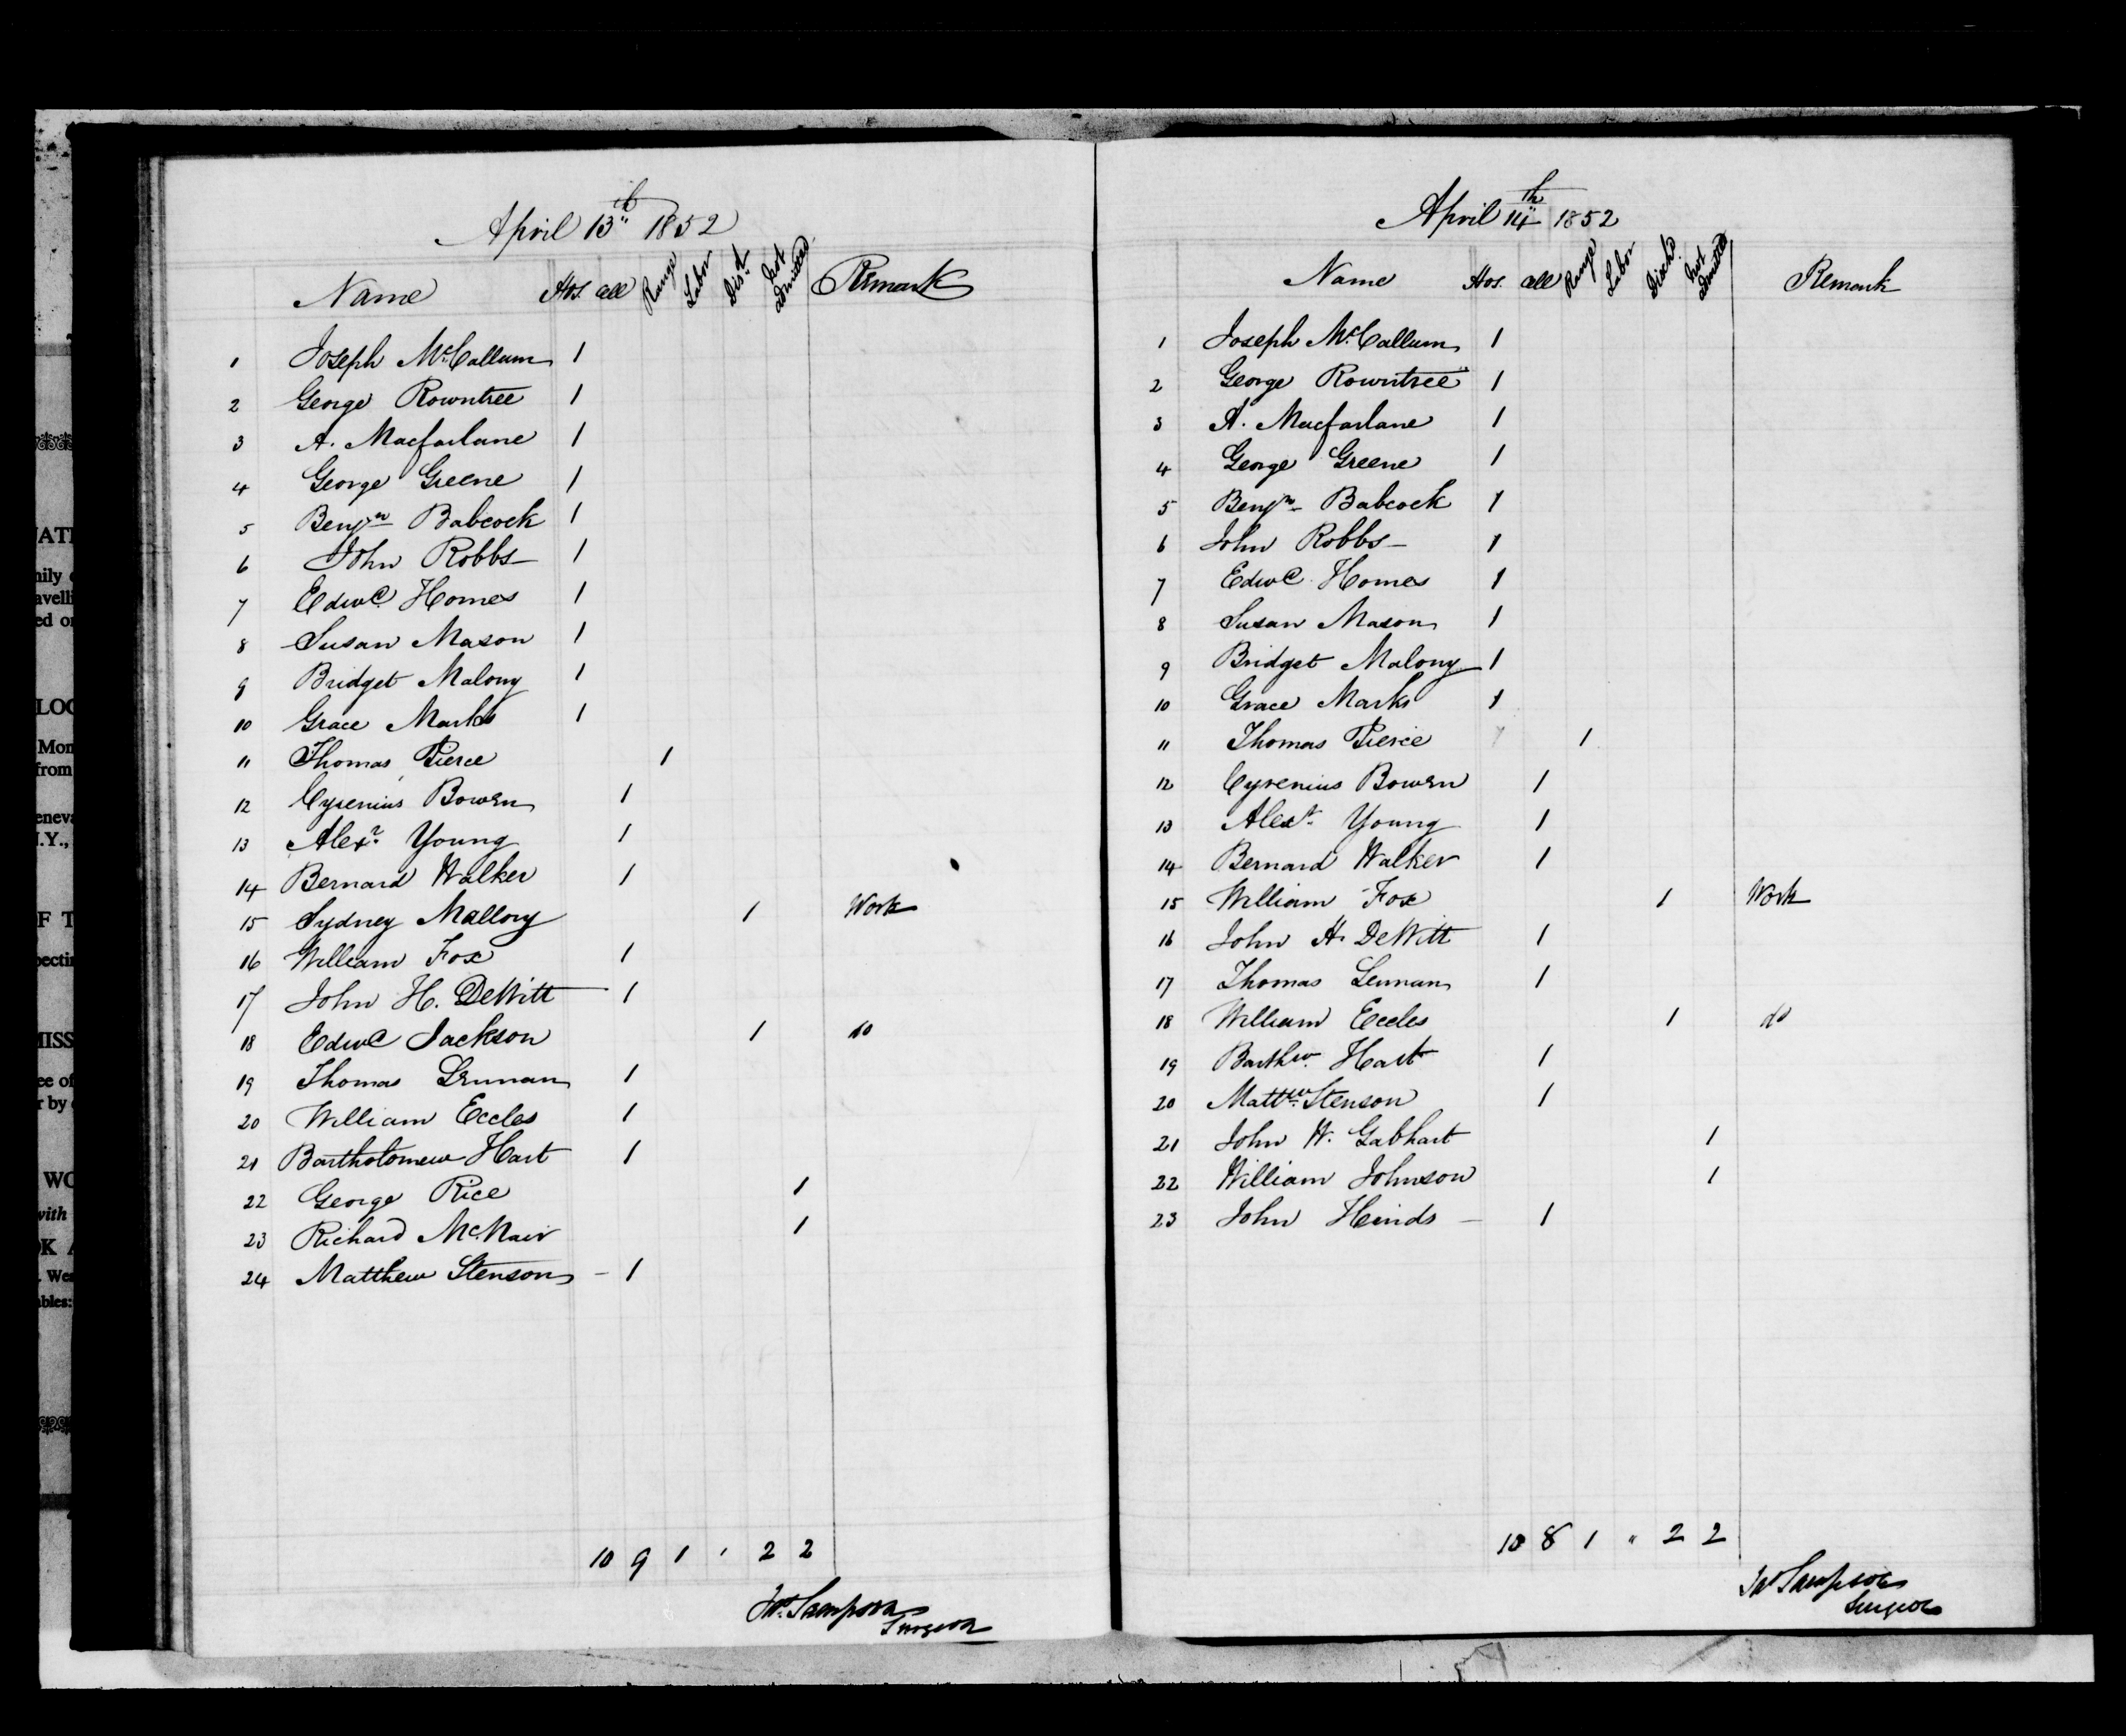 April 13th 1852
Name Hos. Cell Range Labor Disd. Not admitted Remark
1 Joseph McCallum 1
2 George Rowntree 1
3 A. Macfarlane 1
4 George Greene 1
5 Benjn Babcock 1
6 John Robbs 1
7 Edwd Homes 1
8 Susan Mason 1
9 Bridget Malony 1
10 Grace Marks 1
11 Thomas Pierce 1
12 Cyrenius Bowen 1
13 Alexr Young 1
14 Bernard Walker 1
15 Sydney Mallory 1 Work
16 William Fox 1
17 John H. DeWitt 1
18 Edwd Jackson 1 do
19 Thomas Lennan 1
20 William Eccles 1
21 Bartholomew Hart 1
22 George Rice 1
23 Richard McNair 1
24 Matthew Stenson - 1
10 9 1 " 2 2
Jas. Sampson
Surgeon
April 14th 1852
Name Hos. Cell Range Labor Dischd. Not admitted Remark
1 Joseph McCallum 1
2 George Rowntree 1
3 A. Macfarlane 1
4 George Greene 1
5 Benjn Babcock 1
6 John Robbs 1
7 Edwd Homes 1
8 Susan Mason 1
9 Bridget Malony 1
10 Grace Marks 1
11 Thomas Pierce 1
12 Cyrenius Bowen 1
13 Alexr Young 1
14 Bernard Walker 1
15 William Fox 1 Work
16 John H. DeWitt 1
17 Thomas Lennan 1
18 William Eccles 1 do
19 Barthw. Hart 1
20 Mattw. Stenson 1
21 John W. Gabhart 1
22 William Johnson 1
23 John Heinds - 1
10 8 1 " 2 2
Jas Sampson
Surgeon